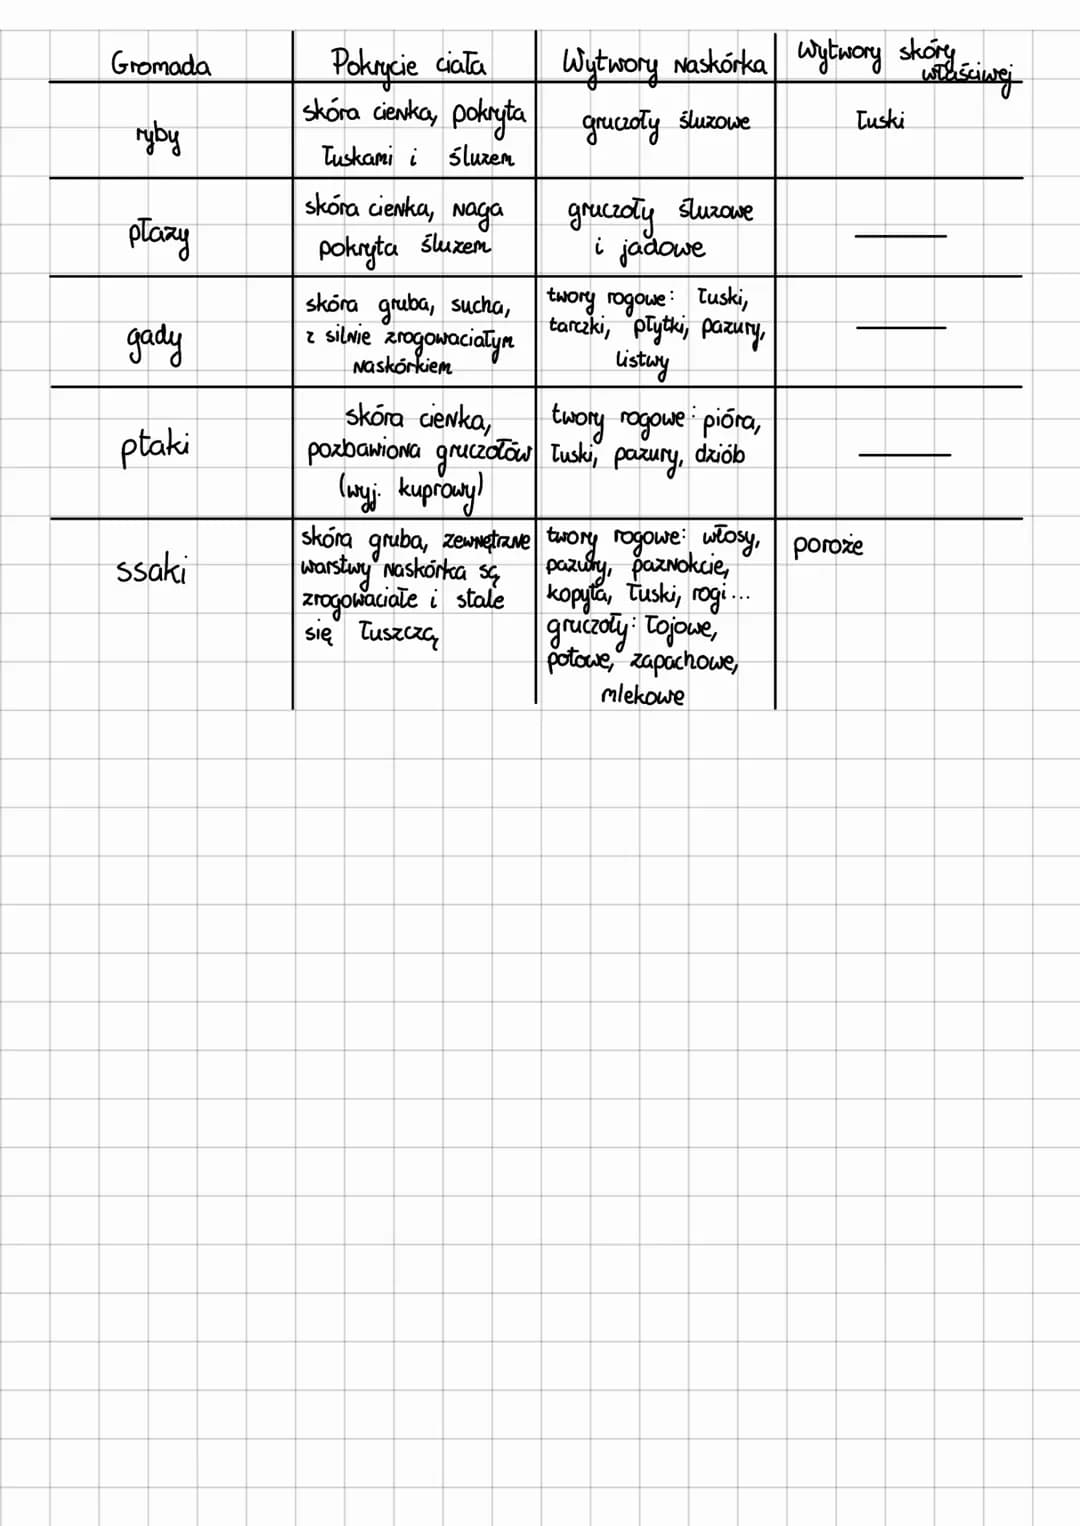 Gromada Pokrycie ciała Wytwory naskórka Wytwory skóry właściwej
ryby
skóra cienka, pokryta
łuskami i śluzem
gruczoły śluzowe
łuski
płazy
skóra cienka, naga
pokryta śluzem
gruczoły śluzowe
i jadowe
—
gady
skóra gruba, sucha,
z silnie zrogowaciałym
naskórkiem
twory rogowe: łuski,
tarczki, płytki, pazury,
listwy
—
ptaki
skóra cienka,
pozbawiona gruczołów
(wyj. kuprowy)
twory rogowe: pióra,
łuski, pazury, dziób
—
ssaki
skóra gruba, zewnętrzne
warstwy naskórka są
zrogowaciałe i stale
się łuszczą
twory rogowe: włosy,
pazury, paznokcie,
kopyta, łuski, rogi...
gruczoły: łojowe,
potowe, zapachowe,
mlekowe
poroże